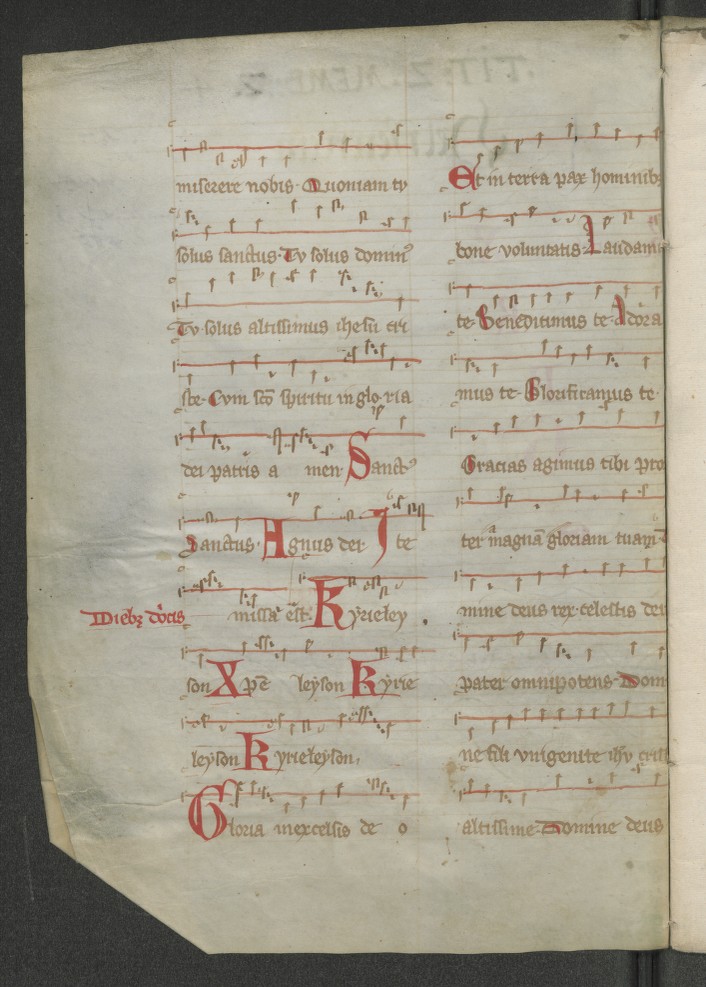 miserere nobis. Quoniam tu
solus sanctus. Tu solus domin᾽
Tu solus altissimus ihesu cri
ste. Cum sco spiritu in glo ria
dei patris a men Sanct᾽
Sanctus. Agnus dei Ite
Dieb; missa est. Kyrieley
son Xpe leyson Kyrie
leyson Kyrieleyson.
Gloria inexcelsis de o
Et in terra pax hominib;
bone voluntatis. Laudam
te. Benedicimus te. Adora
mus te. Glorificamus te.
Gracias agimus tibi pro
ter magna gloriam tuam.
mine deus rex celestis dei
pater omnipotens. Dom
ne fili unigenite ihu cris
altissime. Domine deus